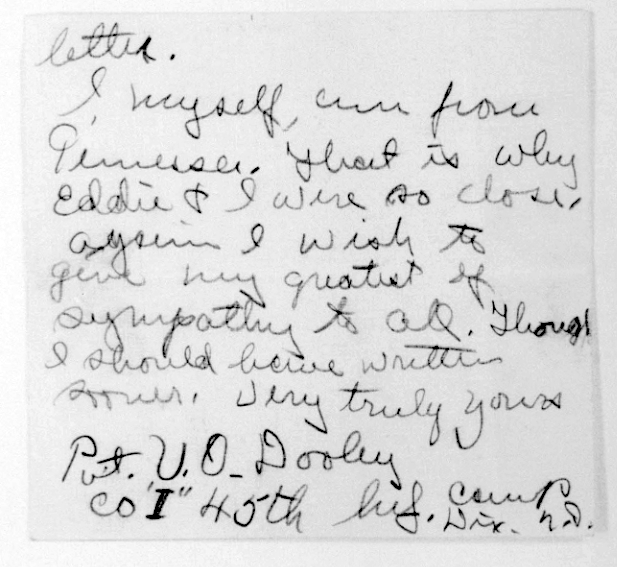 letter.
I, myself, am from
Tennessee. That is why
Eddie & I were so close.
again I wish to
give my greatest of
sympathy to all. Though
I should have written
sooner. Very truly yours
Pvt. V. O. Dooley
Co "I" 45th Inf. Camp
Dix. N.J.